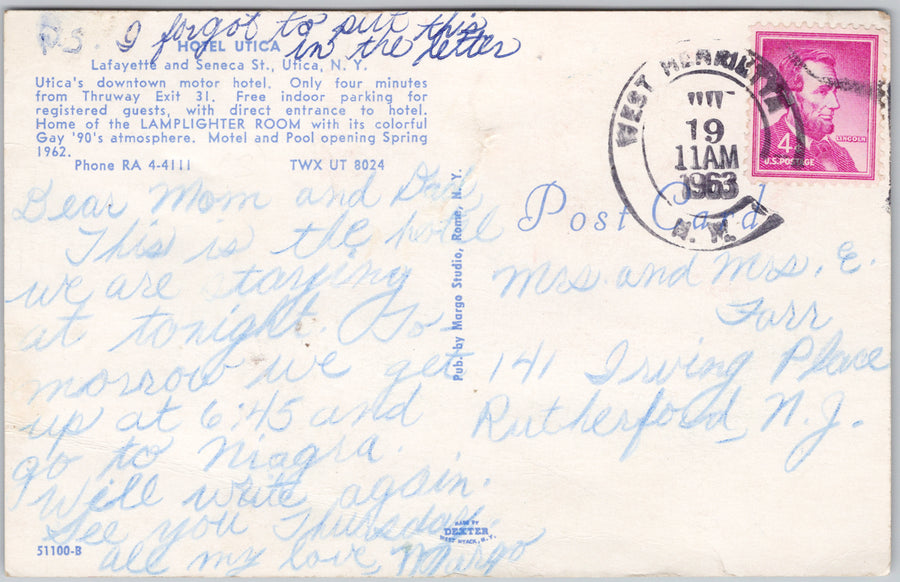 P.S. I forgot to put this
in the letter
HOTEL UTICA
Lafayette and Seneca St., Utica, N. Y.
Utica's downtown motor hotel. Only four minutes
from Thruway Exit 31. Free indoor parking for
registered guests, with direct entrance to hotel.
Home of the LAMPLIGHTER ROOM with its colorful
Gay '90's atmosphere. Motel and Pool opening Spring
1962.
Phone RA 4-4111 TWX UT 8024
Dear Mom and Dad
This is the hotel
we are staying
at tonight. To-
morrow we get
up at 6:45 and
go to Niagra.
Will write again.
See you Thursday.
all my love, Margo
51100-B
Pub. by Margo Studio, Rome, N. Y.
MADE BY
DEXTER
WEST NYACK, N.Y.
WEST HENRIETTA
19
11AM
1963
N. Y.
4¢
LINCOLN
U.S. POSTAGE
Post Card
Mrs and Mrs. E.
Farr
141 Irving Place
Rutherford, N.J.